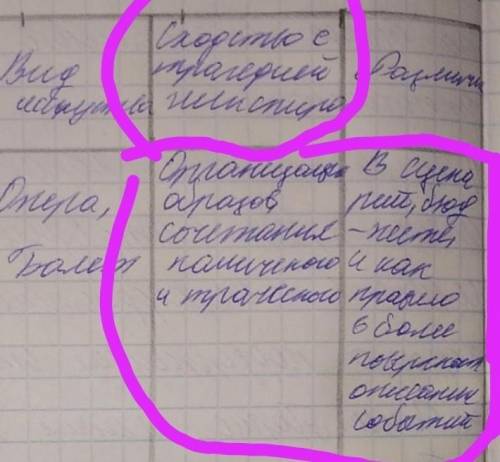 Вид
искусства
Сходство с
трагедией
Шекспира
Различия
Опера,
Балет
Организация
образов
сочетания
комичного
и трагеского
В сцена
рии, бюд
-жете,
и как
правило
в более
поверхност
описании
событий